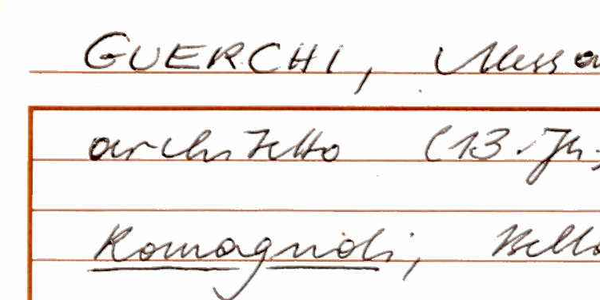 GUERCHI,
architetto (13. Jh.
Romagnoli,